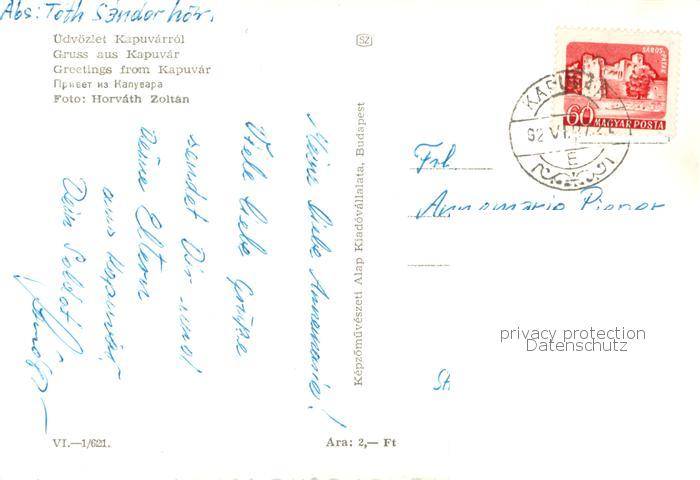 Abs: Tóth Sándor hőr.
Üdvözlet Kapuvárról
Gruss aus Kapuvár
Greetings from Kapuvár
Привет из Капувара
Foto: Horváth Zoltán
SZ
Meine liebe Annamarie!
Viele liebe Grüße
sendet Dir und
Deine Eltern
aus Kapuvár
Dein Soldat
Sándor
VI.—1/621.
Ára: 2,— Ft
Képzőművészeti Alap Kiadóvállalata, Budapest
SÁROSPATAK
60 MAGYAR POSTA
KAPUVÁR
62 VI.
E
Frl.
Annamaria
St
privacy protection
Datenschutz